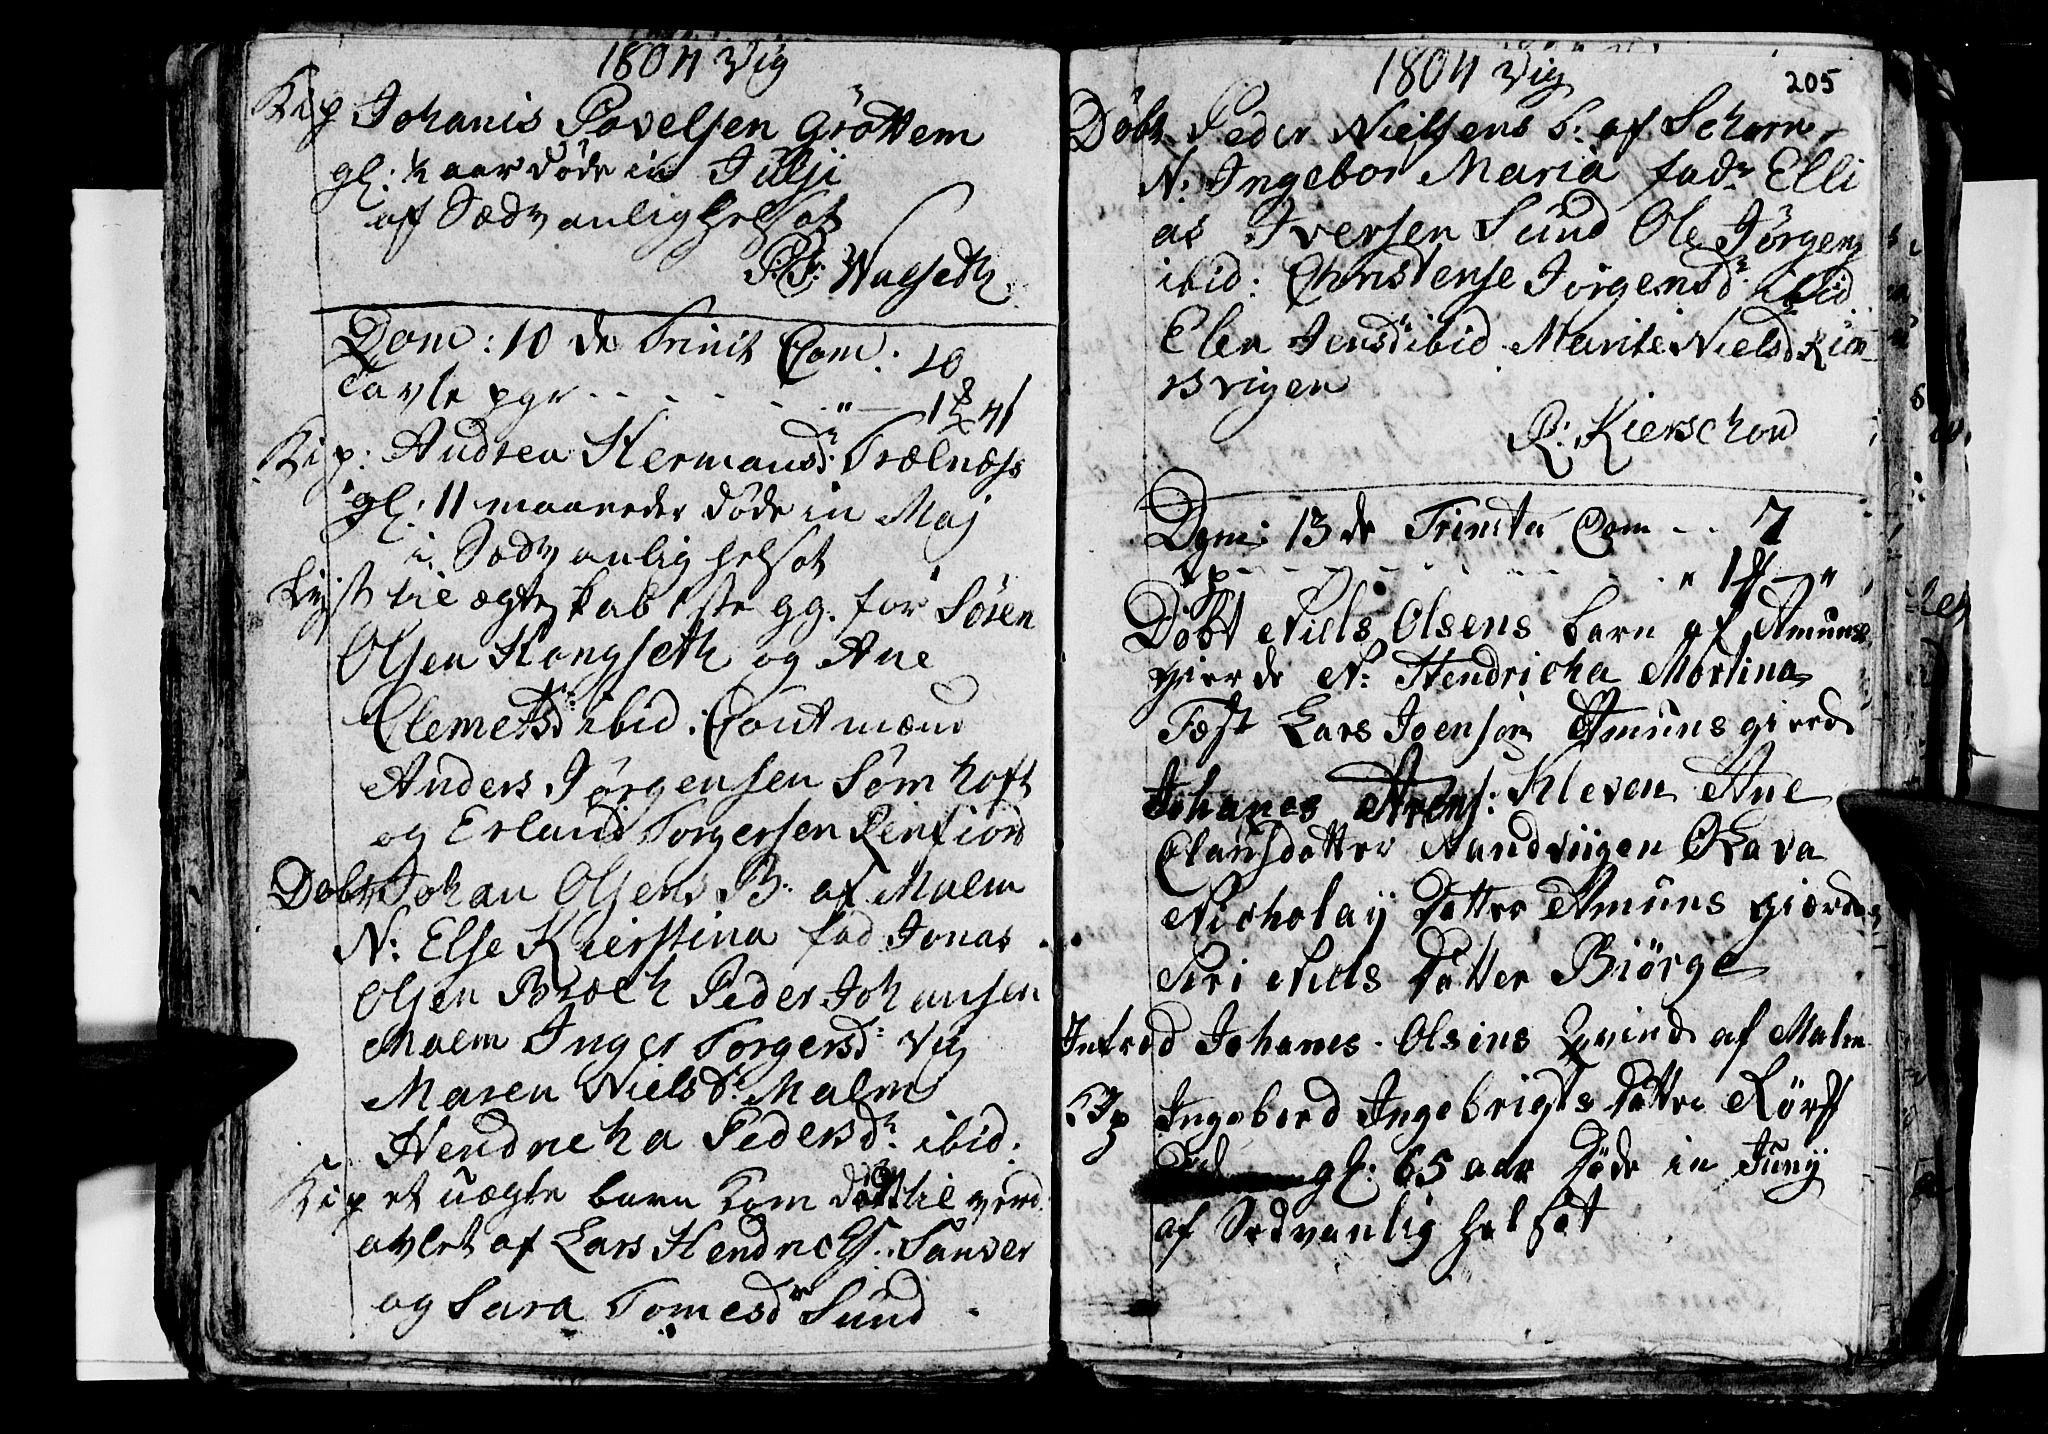 1804 Vig
Kip Johanis Povelsen Gröttem
gl: ½ aar döde in Julji
af Sædvanlig helsot
Walseth
Dom: 10 de Trinit Com: 10
tavle pgr
Kip: Andrea Hermansd: Trælnæss
gl: 11 maaneder döde in Maj
i Sædvanlig helsot
Lyst til ægteskab 1ste gg. for Sören
Olsen Hongseth og Ane
Clemetsd ibid. Cautmænd
Anders Jörgensen Sömhoft
og Erland Torgersen
Döbt Johan Olsens B. af Malm
N: Else Kierstina fad Jonas
Olsen Broch Peder Johansen
Malm Inger Torgersd: Vig
Maren Nielsd: Malm
Hendricha Pedersd: ibid:
Kip et uægte barn kom död til verd
avlet af Lars Hendrichs: Sanver
og Sara Tomesd Sund
1804 Vig 205
Döbt Peder Nielsens b: af
N: Ingebor Maria fad: Elli
as Iversen Sund Ole Jörgens
ibid: Christense Jörgensd: ibid
Elen Jensd ibid Marite Nielsd Kier
svigen
Kierschow
Dom: 13 de Trinita Com - - 7
Döbt Niels Olsens barn af Amuns
gierde N: Hendricha Martina
Fæst Lars Joensen Amunsgierd
Johanes Arens: Kleven Ane
Clausdatter Sandviigen Olava
Nicholay datter Amuns gierde
Siri Niels datter Biörge
Introd Johanes Olsens Qvinde af Malm
Kip Ingebord Ingebrigts datter
gl: 65 aar döde in Junij
af Sædvanlig helsot